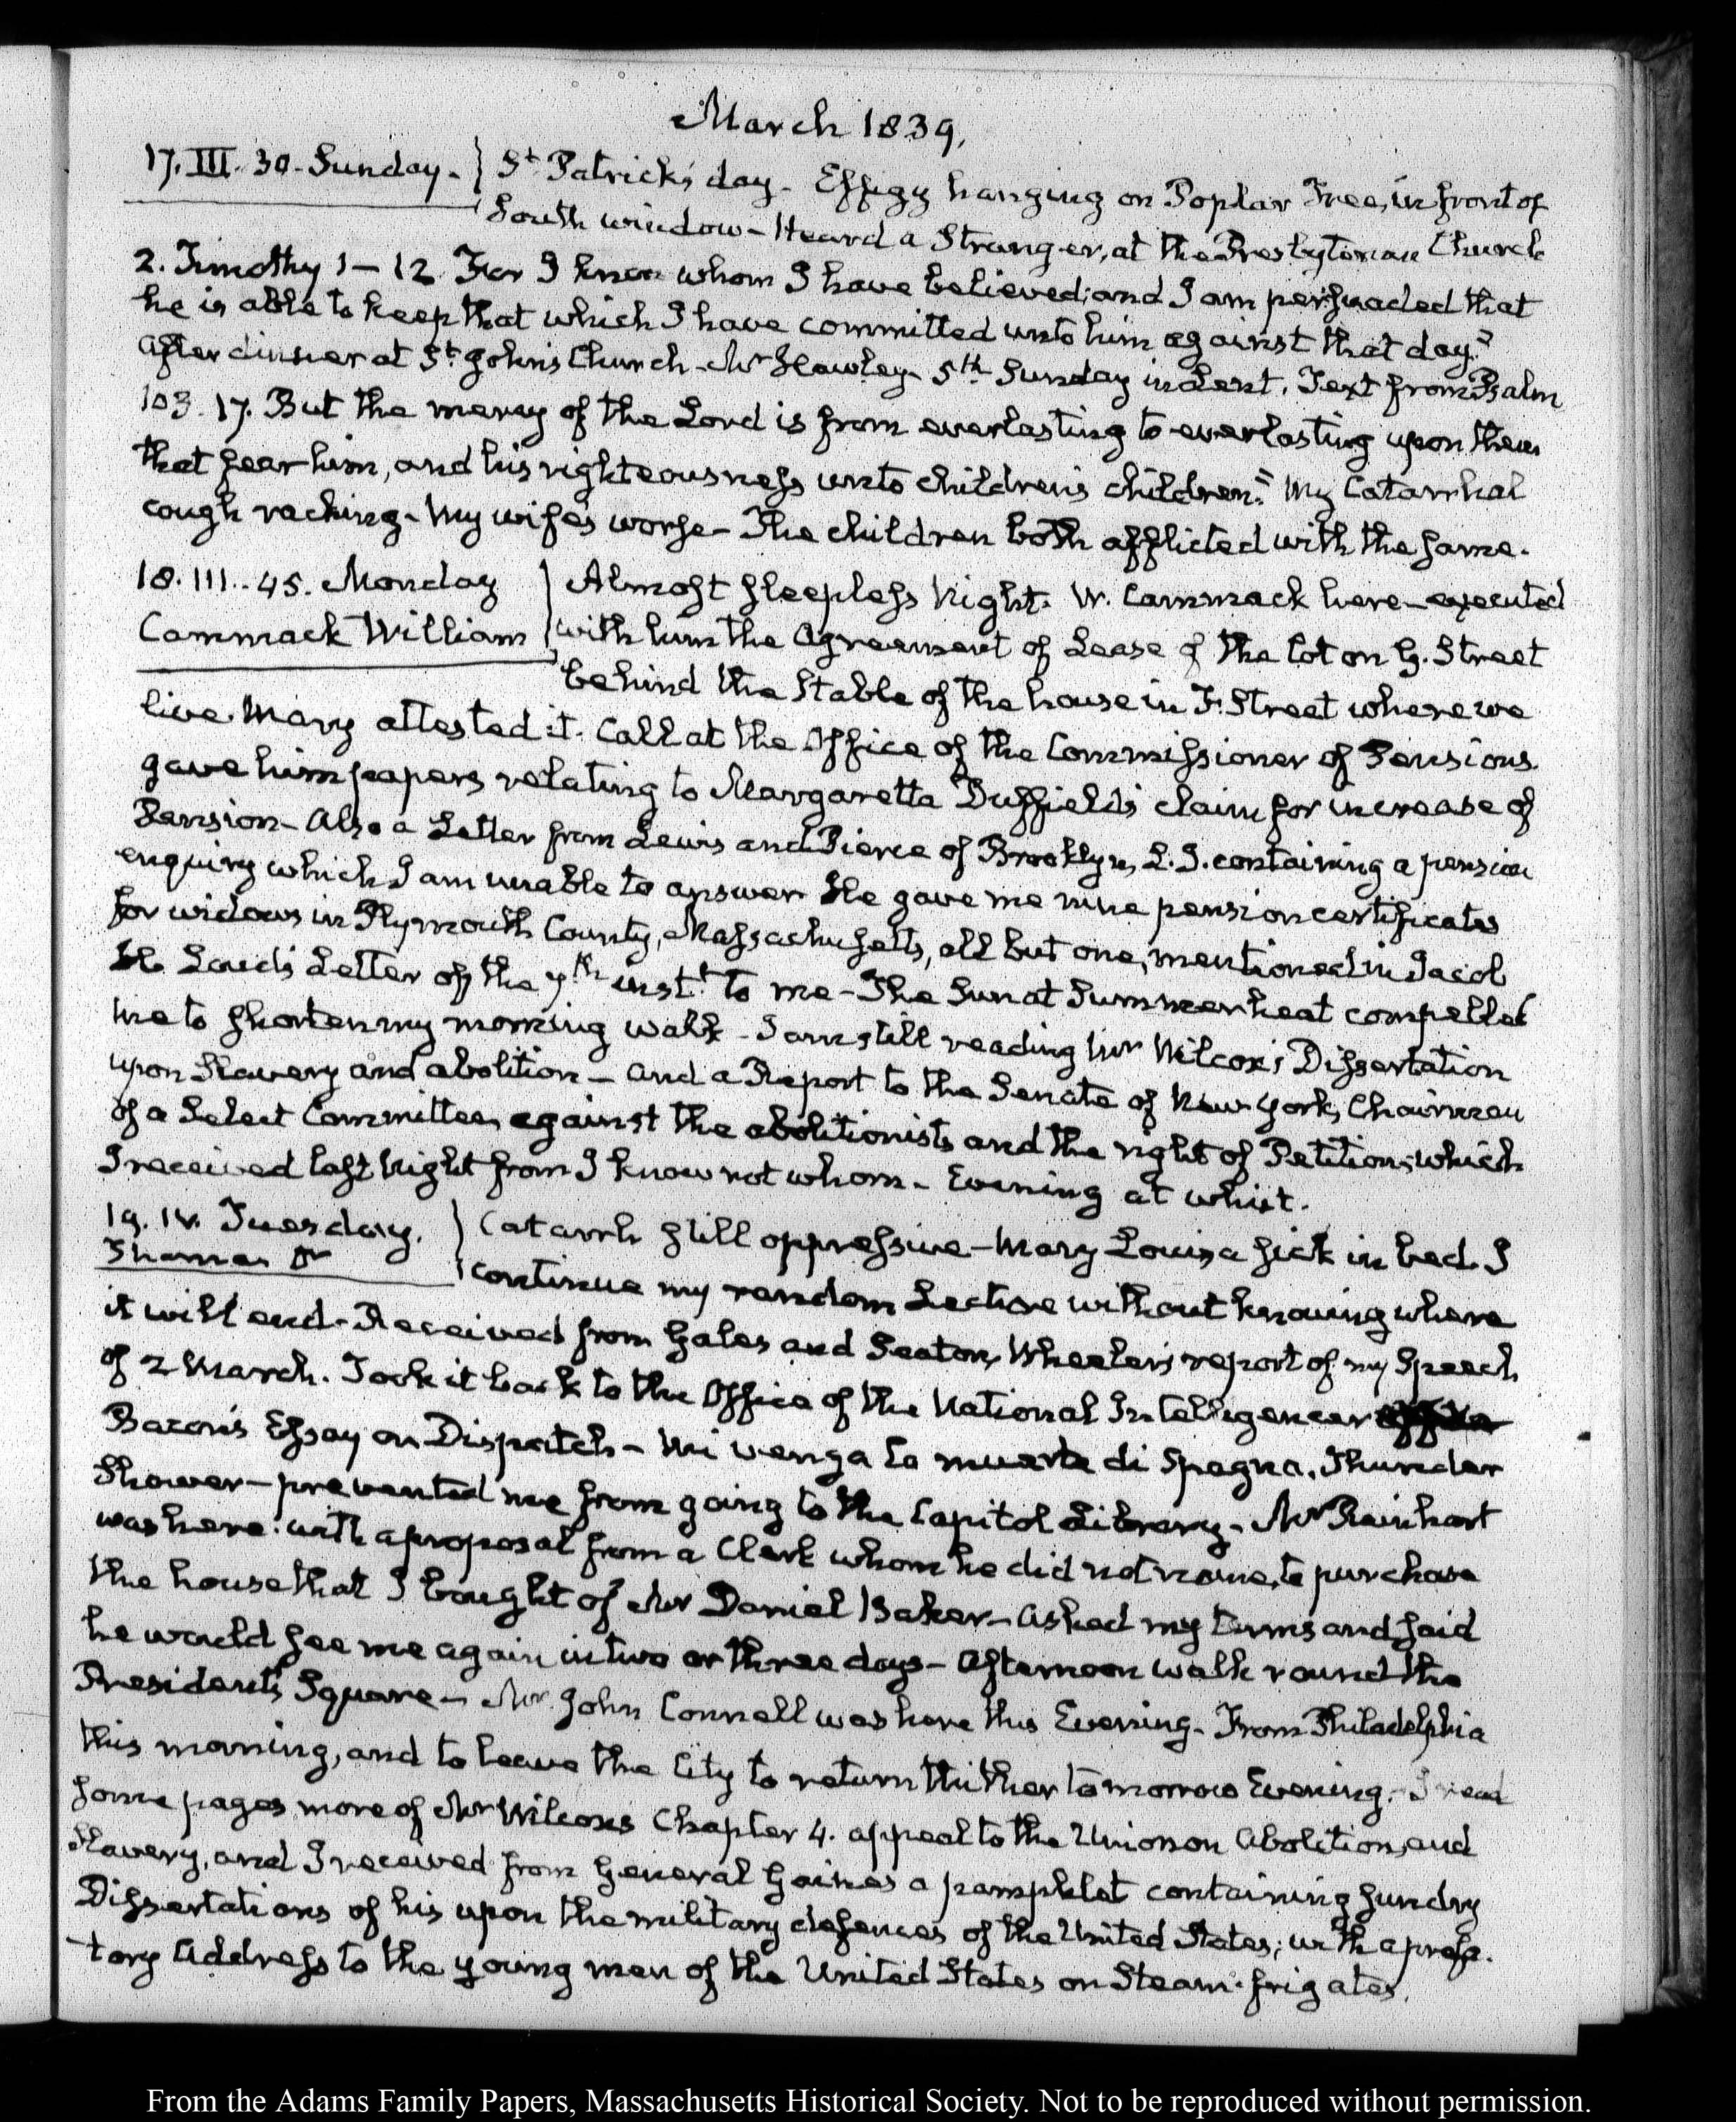 March 1839.
17. III. 30. Sunday. St. Patrick's day. Effigy hanging on Poplar Tree, in front of
South window - Heard a Stranger, at the Presbyterian Church
2. Timothy 1-12. For I know whom I have believed; and I am persuaded that
he is able to keep that which I have committed unto him against that day."
After dinner at St. John's Church - Mr Hawley - 5th Sunday in Lent. Text from Psalm
103. 17. But the mercy of the Lord is from everlasting to everlasting upon them
that fear him, and his righteousness unto children's children." My Catarrhal
cough racking - My wife's worse - The children both afflicted with the same.
18. III. 45. Monday Almost sleepless Night. W. Cammack here - executed
Cammack William with him the Agreement of Lease of the lot on G. Street
behind the Stable of the house in F. Street where we
live. Mary attested it. Call at the Office of the Commissioner of Pensions.
gave him papers relating to Margaretta Duffield's claim for increase of
Pension - Also a Letter from Lewis and Pierce of Brooklyn, L. I. containing a pension
enquiry which I am unable to answer He gave me nine pension certificates
for widows in Plymouth County, Massachusetts, all but one, mentioned in Jacob
H. Loud's Letter of the 7th inst. to me - The Sun at Summer heat compelled
me to shorten my morning walk - I am still reading Mr Wilcox's Dissertation
upon Slavery and abolition - and a Report to the Senate of New York, Chairman
of a Select Committee, against the abolitionists and the right of Petition; which
I received last Night from I know not whom - Evening at whist.
19. IV. Tuesday. Catarrh still oppressive - Mary Louisa sick in bed. I
Thomas Dr continue my random Lecture without knowing where
it will end - Received from Gales and Seaton, Wheeler's report of my Speech
of 2 March. Took it back to the Office of the National Intelligencer
Bacon's Essay on Dispatch - Mi venga la muerte di Spagna. Thunder
Shower - prevented me from going to the Capitol Library - Mr Rainhart
was here: with a proposal from a Clerk whom he did not name, to purchase
the house that I bought of Mr Daniel Baker - asked my terms and said
he would see me again in two or three days - Afternoon walk round the
President's Square - Mr John Connell was here this Evening - From Philadelphia
this morning, and to leave the City to return thither tomorrow Evening. I read
some pages more of Mr Wilcox's Chapter 4. appeal to the Union on Abolition, and
Slavery, and I received from General Gaines a pamphlet containing sundry
Dissertations of his upon the military defences of the United States; with a prefa-
tory Address to the young men of the United States on Steam-frigates.
From the Adams Family Papers, Massachusetts Historical Society. Not to be reproduced without permission.